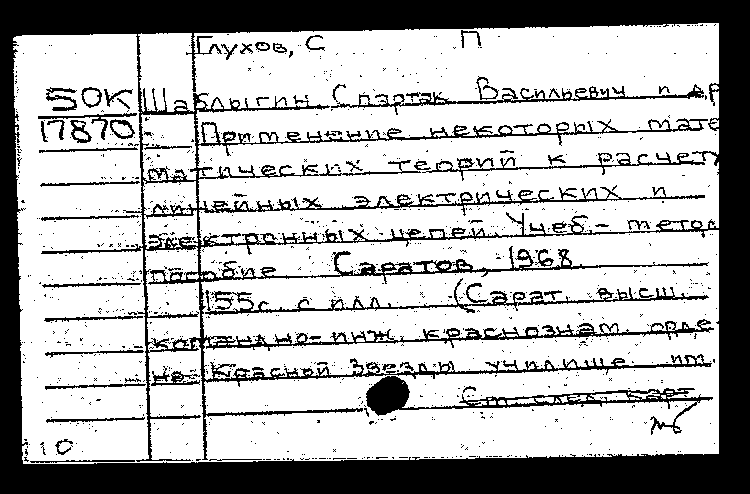 Глухов, С П
50К Шаблыгин, Спартак Васильевич и др
17870 - Применение некоторых мате
матических теорий к расчету
линейных электрических и
электронных цепей. Учеб.- метод
пособие Саратов, 1968.
155с. с илл. (Сарат. высш.
командно-инж. краснознам. орде-
на Красной Звезды училище им.
См. след. карт.
10